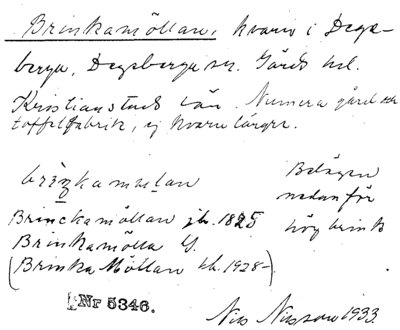 Brinkamöllan, kvarn i Dege-
berga, Degeberga sn. Gärds hd.
Kristianstads län. Numera gård och
toffelfabrik, ej kvarn längre.
Belägen
nedanför
hög brink
Brinckamöllan jb. 1825
Brinkamölla G.
(Brinka Möllan 1928-)
Nr 5346.
Nils Nilsson 1933.